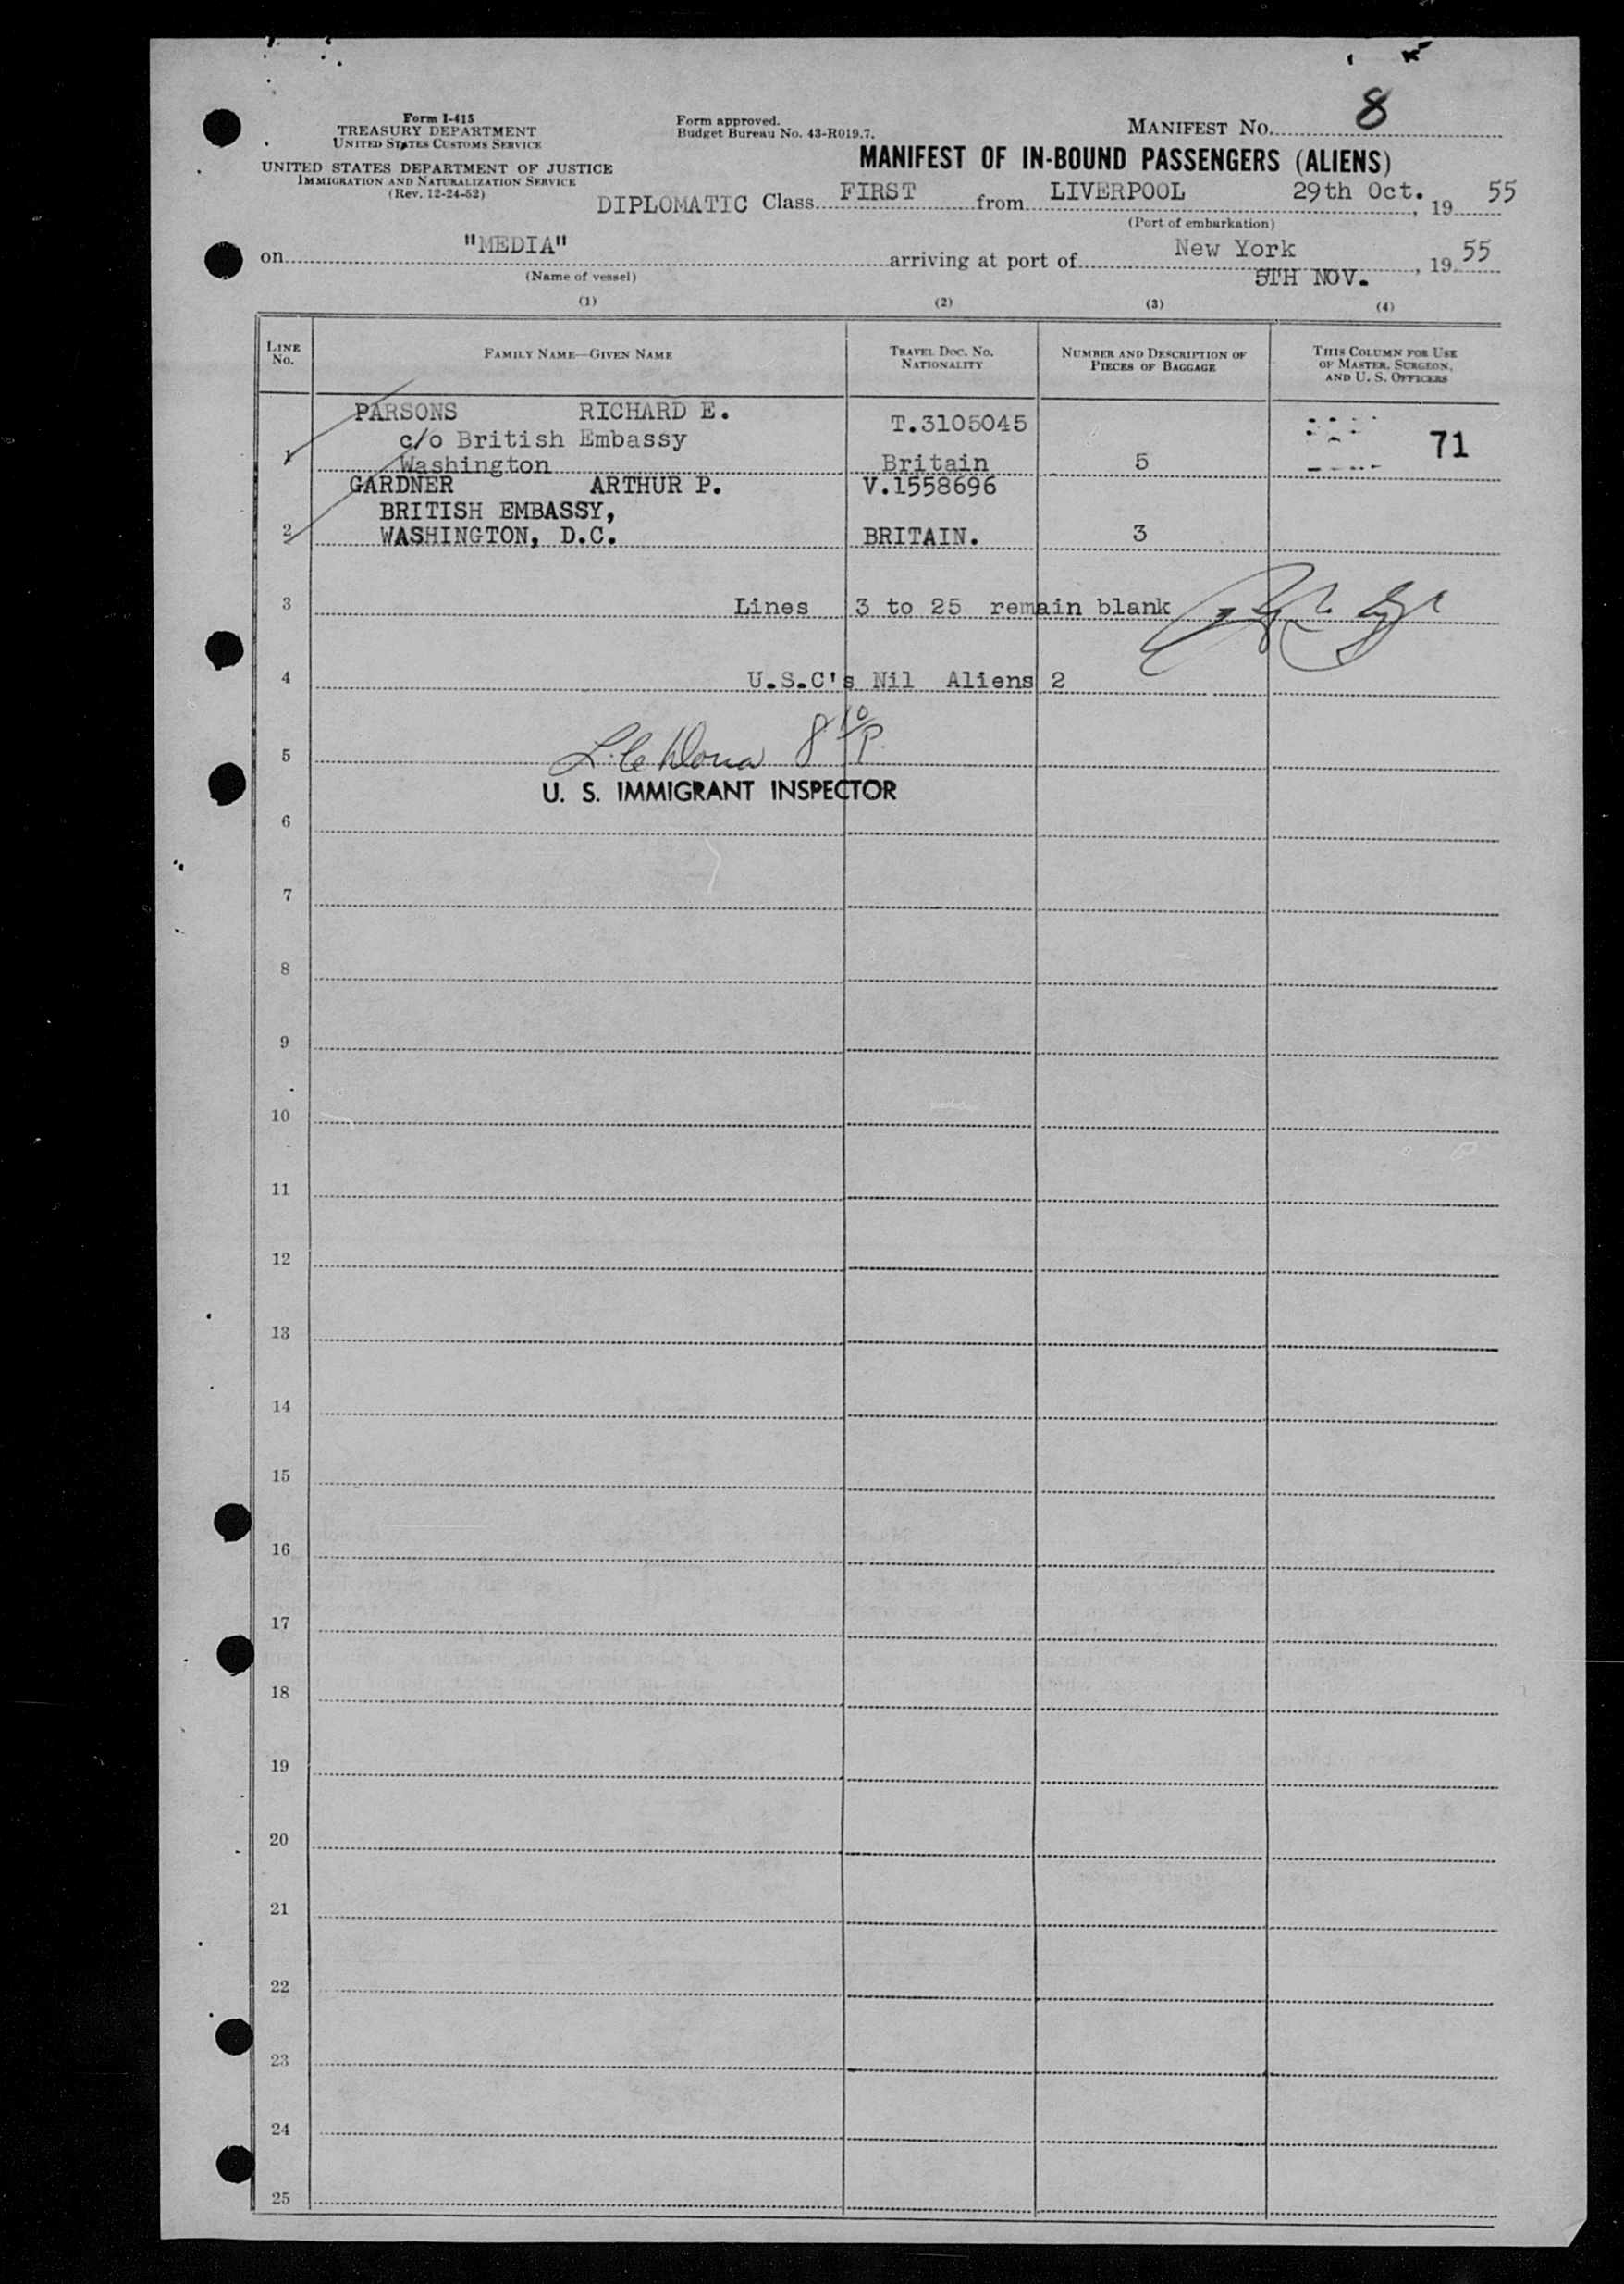 Form I-415
TREASURY DEPARTMENT
UNITED STATES CUSTOMS SERVICE
UNITED STATES DEPARTMENT OF JUSTICE
IMMIGRATION AND NATURALIZATION SERVICE
(Rev. 12-24-52)
Form approved.
Budget Bureau No. 43-R019.7.
MANIFEST NO. 8
MANIFEST OF IN-BOUND PASSENGERS (ALIENS)
DIPLOMATIC Class FIRST from LIVERPOOL 29th Oct., 19 55
(Port of embarkation)
on "MEDIA" arriving at port of New York 5TH NOV., 19 55
(Name of vessel)
(1) (2) (3) (4)
LINE No. FAMILY NAME—GIVEN NAME TRAVEL DOC. NO. NATIONALITY NUMBER AND DESCRIPTION OF PIECES OF BAGGAGE THIS COLUMN FOR USE OF MASTER, SURGEON, AND U. S. OFFICERS
PARSONS RICHARD E. T.3105045
c/o British Embassy 71
1 Washington Britain 5
GARDNER ARTHUR P. V.1558696
BRITISH EMBASSY,
2 WASHINGTON, D.C. BRITAIN. 3
3 Lines 3 to 25 remain blank
4 U.S.C's Nil Aliens 2
5 8 10/P.
U. S. IMMIGRANT INSPECTOR
6
7
8
9
10
11
12
13
14
15
16
17
18
19
20
21
22
23
24
25